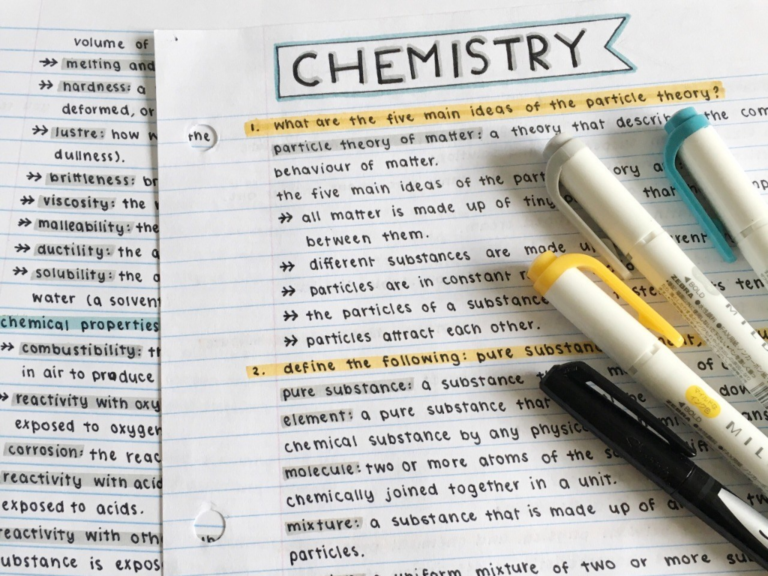 volume of
↠ melting and
↠ hardness: a
deformed, or
↠ lustre: how
dullness).
↠ brittleness: br
↠ viscosity: the
↠ malleability: the
↠ ductility: the
↠ solubility: the
water (a solven
chemical properties
↠ combustibility: th
in air to produce
↠ reactivity with oxy
exposed to oxygen
corrosion: the reac
reactivity with acid
exposed to acids.
reactivity with oth
ubstance is expos
the
CHEMISTRY
1. what are the five main ideas of the particle theory?
particle theory of matter: a theory that describ the com
behaviour of matter.
the five main ideas of the part ory
↠ all matter is made up of tiny that
between them.
↠ different substances are made u rent
↠ particles are in constant
↠ the particles of a substance
↠ particles attract each other.
2. define the following: pure substan
pure substance: a substance of
element: a pure substance that
chemical substance by any physic
molecule: two or more atoms of the
chemically joined together in a unit.
mixture: a substance that is made up of
particles.
uniform mixture of two or more su
ZEBRA
MIL
MIL